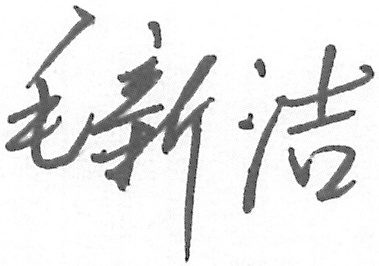 毛新洁